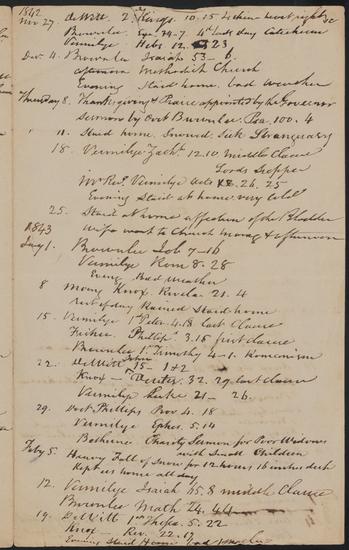 1842
Nov 27. deWitt 2 Kings. 10.15 Is thine heart right &c
Brownlee Eze 34-7. 4th Lords day Catechism
Vermilye Hebs 12. 23
Dec 4. Brownlee Isaiah 53-6.
afternoon Methodist Church
Evening Staid home. bad weather
Thursday 8. Thanksgiving & Praise appointed by the Governor
Sermon by Doct Brownlee Psa. 100. 4
11. Staid home. Snowed. Sick Stranguary
18. Vermilye Zach. 12.10 middle Clause
Lords Supper
Mr Revd. Vermilye Acts 26. 25
Evening Staid at home. very cold
25. Staid at home affection of the Bladder
wife went to Church morng & afternoon
1843
Jany 1. Brownlee Job 7-16
Vermilye Rom 8-28
Eveng Bad weather
8 Morng Knox Revela. 21. 4
rest of day Rained Staid home
15. Vermilye 1st Peter 4.18 last Clause
Fisher Phillip. 3.15 first clause
Brownlee 1st Timothy 4-1. Romanism
22. DeWitt John 15- 1+2
Knox - Deuter 32. 29 last clause
Vermilye Luke 21- 26.
29. Doct Phillips Prov 4. 18
Vermilye Ephes. 5.14
Bethune Charity Sermon for Poor Widows
with Small Children
Feby 5. Heavy Fall of Snow for 12 hours 16 inches deep
Kept us home all day
12. Vermilye Isaiah 45.8 middle Clause
Brownlee Math 24. 44
19. DeWitt 1st Thess. 5.22
Knox - Rev. 22.17
Evening Staid Home bad